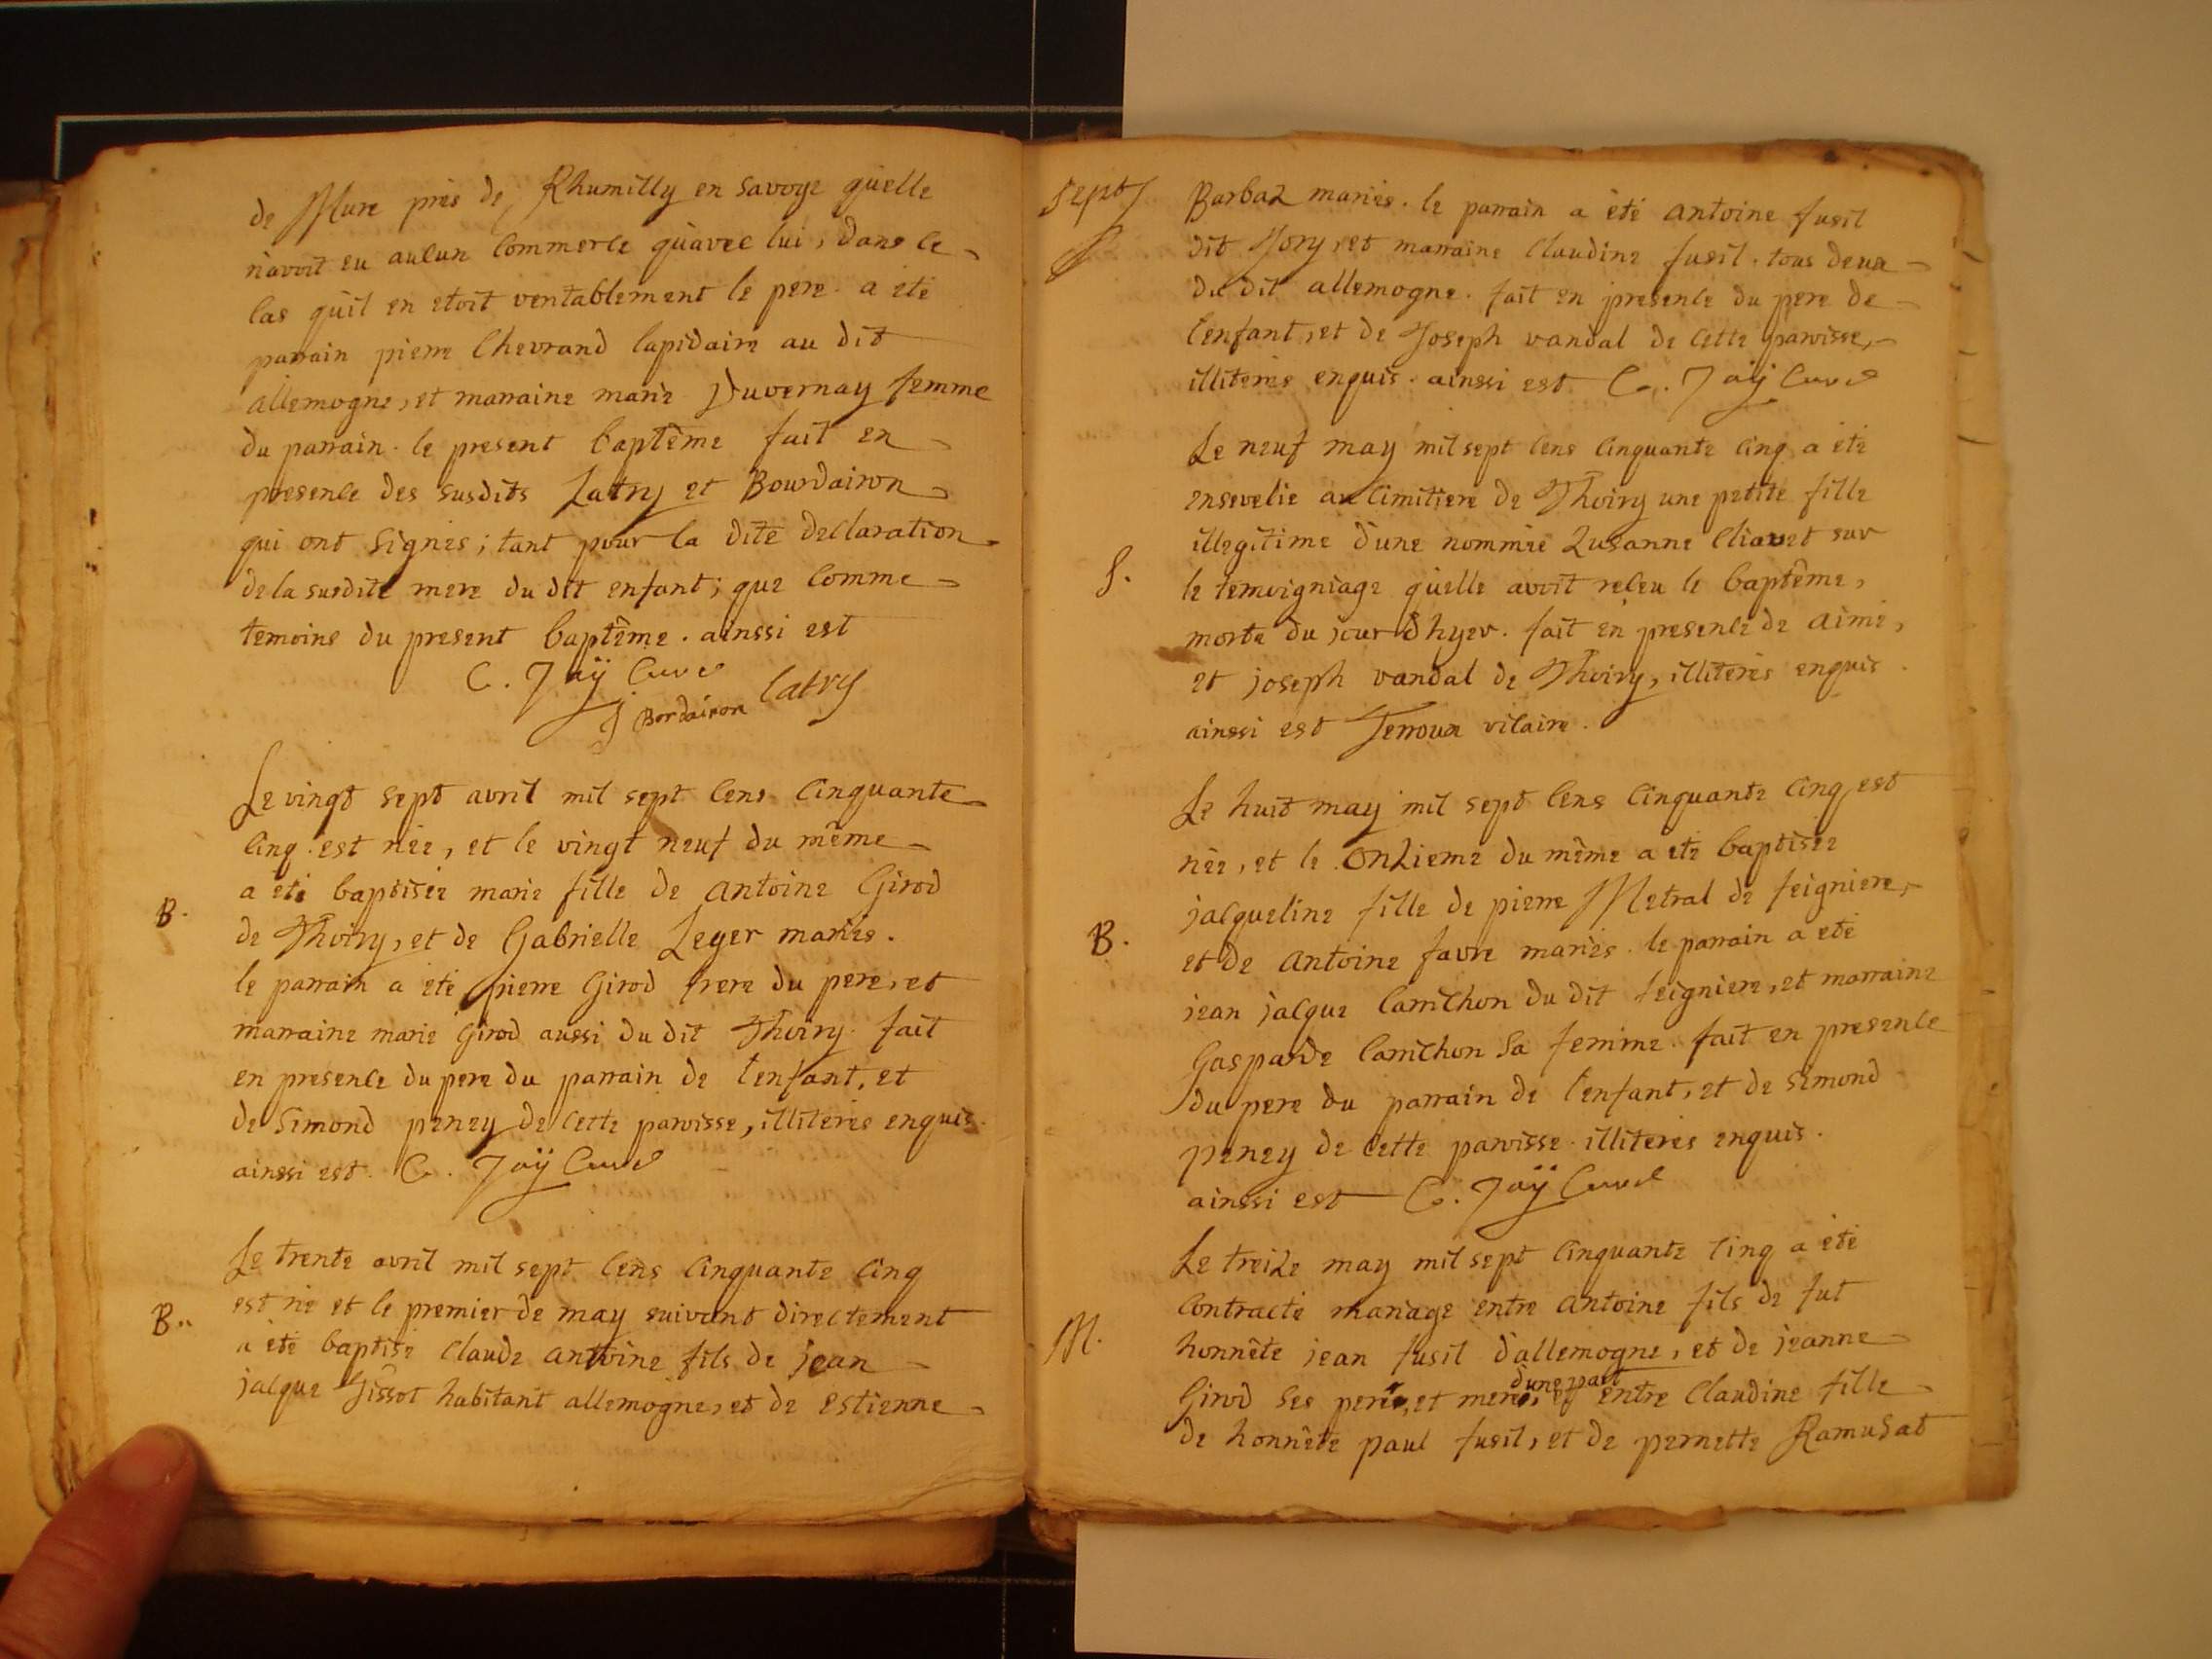 de Mure près de Rhumilly en Savoye qu'elle
n'avoit eu aucun commerce qu'avec lui, dans ce
cas qu'il en etoit veritablement le pere. a eté
parrain pierre Chevrand lapidaire au dit
allemogne, et marraine marie Duvernay femme
du parrain. le present baptême fait en
presence des susdits Latry et Bourdairon
qui ont signés; tant pour la dite declaration
de la susdite mere du dit enfant; que comme
temoins du present baptême. ainssi est
C. Jaÿ Curé
J Bordairon Latry
Le vingt sept avril mil sept cens cinquante
cinq est née, et le vingt neuf du même
a été baptisée marie fille de antoine Girod
B.
de Thoiry, et de Gabrielle Leger mariés.
le parrain a eté pierre Girod frere du pere, et
marraine marie Girod aussi du dit Thoiry. fait
en presence du pere du parrain de l'enfant, et
de Simond peney de cette paroisse, illiterés enquis.
ainssi est. C. Jaÿ Curé
Le trente avril mil sept cens cinquante cinq
B..
est né et le premier de may suivant directement
a été baptisé Claude antoine fils de jean
jacque Gissot habitant allemogne, et de estienne
Sept
Barbaz mariés. le parrain a été antoine fusil
dit Jory, et marraine Claudine fusil. tous deux
du dit allemogne. fait en presence du pere de
l'enfant, et de Joseph vandal de cette paroisse,
illiterés enquis. ainssi est C. Jaÿ Curé
Le neuf may mil sept cens cinquante cinq a été
ensevelie au cimitiere de Thoiry une petite fille
illegitime d'une nommée Zusanne sur
S.
le temoigniage qu'elle avoit receu le baptême,
morte du jour d'hyer. fait en presence de aimé,
et joseph vandal de Thoiry, illiterés enquis.
ainssi est Terroux vicaire.
Le huit may mil sept cens cinquante cinq est
née, et le onzieme du même a eté baptisée
jacqueline fille de pierre Metral de feigniere,
B.
et de antoine favre mariés. le parrain a eté
jean jacque Carrichon du dit feigniere, et marraine
Gasparde Carrichon sa femme. fait en presence
du pere du parrain de l'enfant, et de simond
peney de cette paroisse. illiterés enquis.
ainssi est C. Jaÿ Curé
Le treize may mil sept cinquante cinq a été
contracté mariage entre antoine fils de fut
M.
honnête jean fusil d'allemogne, et de jeanne
d'une part
Girod ses pere, et mere, et entre Claudine fille
de honnête paul fusil, et de pernette Ramusat